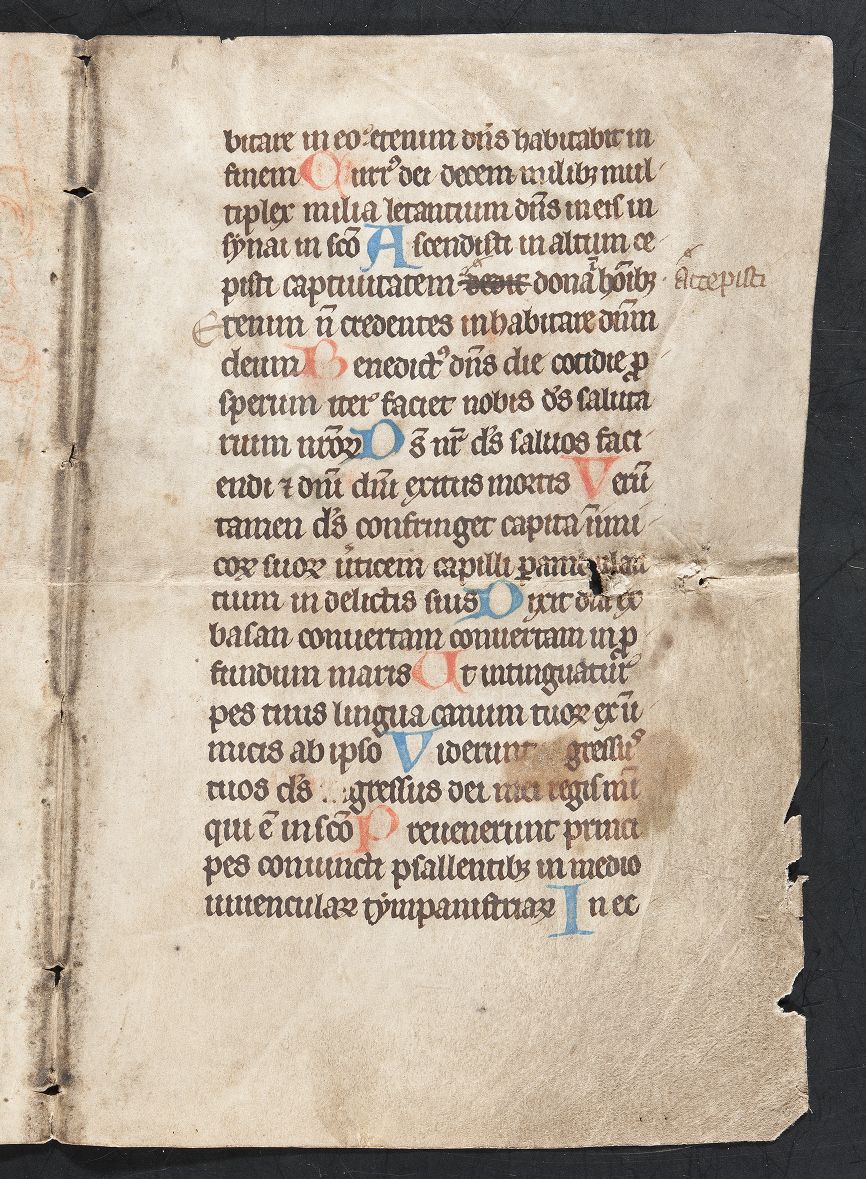 bitare in eo etenim dn̄s habitabit in
finem Curr᷒ dei decem milibꝫ mul
tiplex milia letantium dn̄s in eis in
synai in scō Ascendisti in altum ce
pisti captiuitatem dedit dona ī hoı̄bꝫ accepisti
Etenim n̄ credentes inhabitare dn̄m
deum Benedict᷒ dn̄s die cotidie ꝓ
sperum iter faciet nobis ds̄ saluta
rium nr̄oꝝ Ds̄ nr̄ ds̄ saluos faci
endi ⁊ dn̄i dn̄i exitus mortis Verū
tamen ds̄ confringet capita inimi
coꝝ suoꝝ ūticem capilli ꝑambulan
tium in delictis suis Dixit dn̄s ex
basan conuertam conuertam in ꝓ
fundum maris Ut intinguatur
pes tuus lingua canum tuoꝝ ex ī
micis ab ipso Viderunt gressus
tuos ds̄ gressus dei mei regis mei
qui ē in scō Preuenerunt princi
pes coniuncti psallentibꝫ in medio
iuuenculaꝝ tympanistriaꝝ In ec